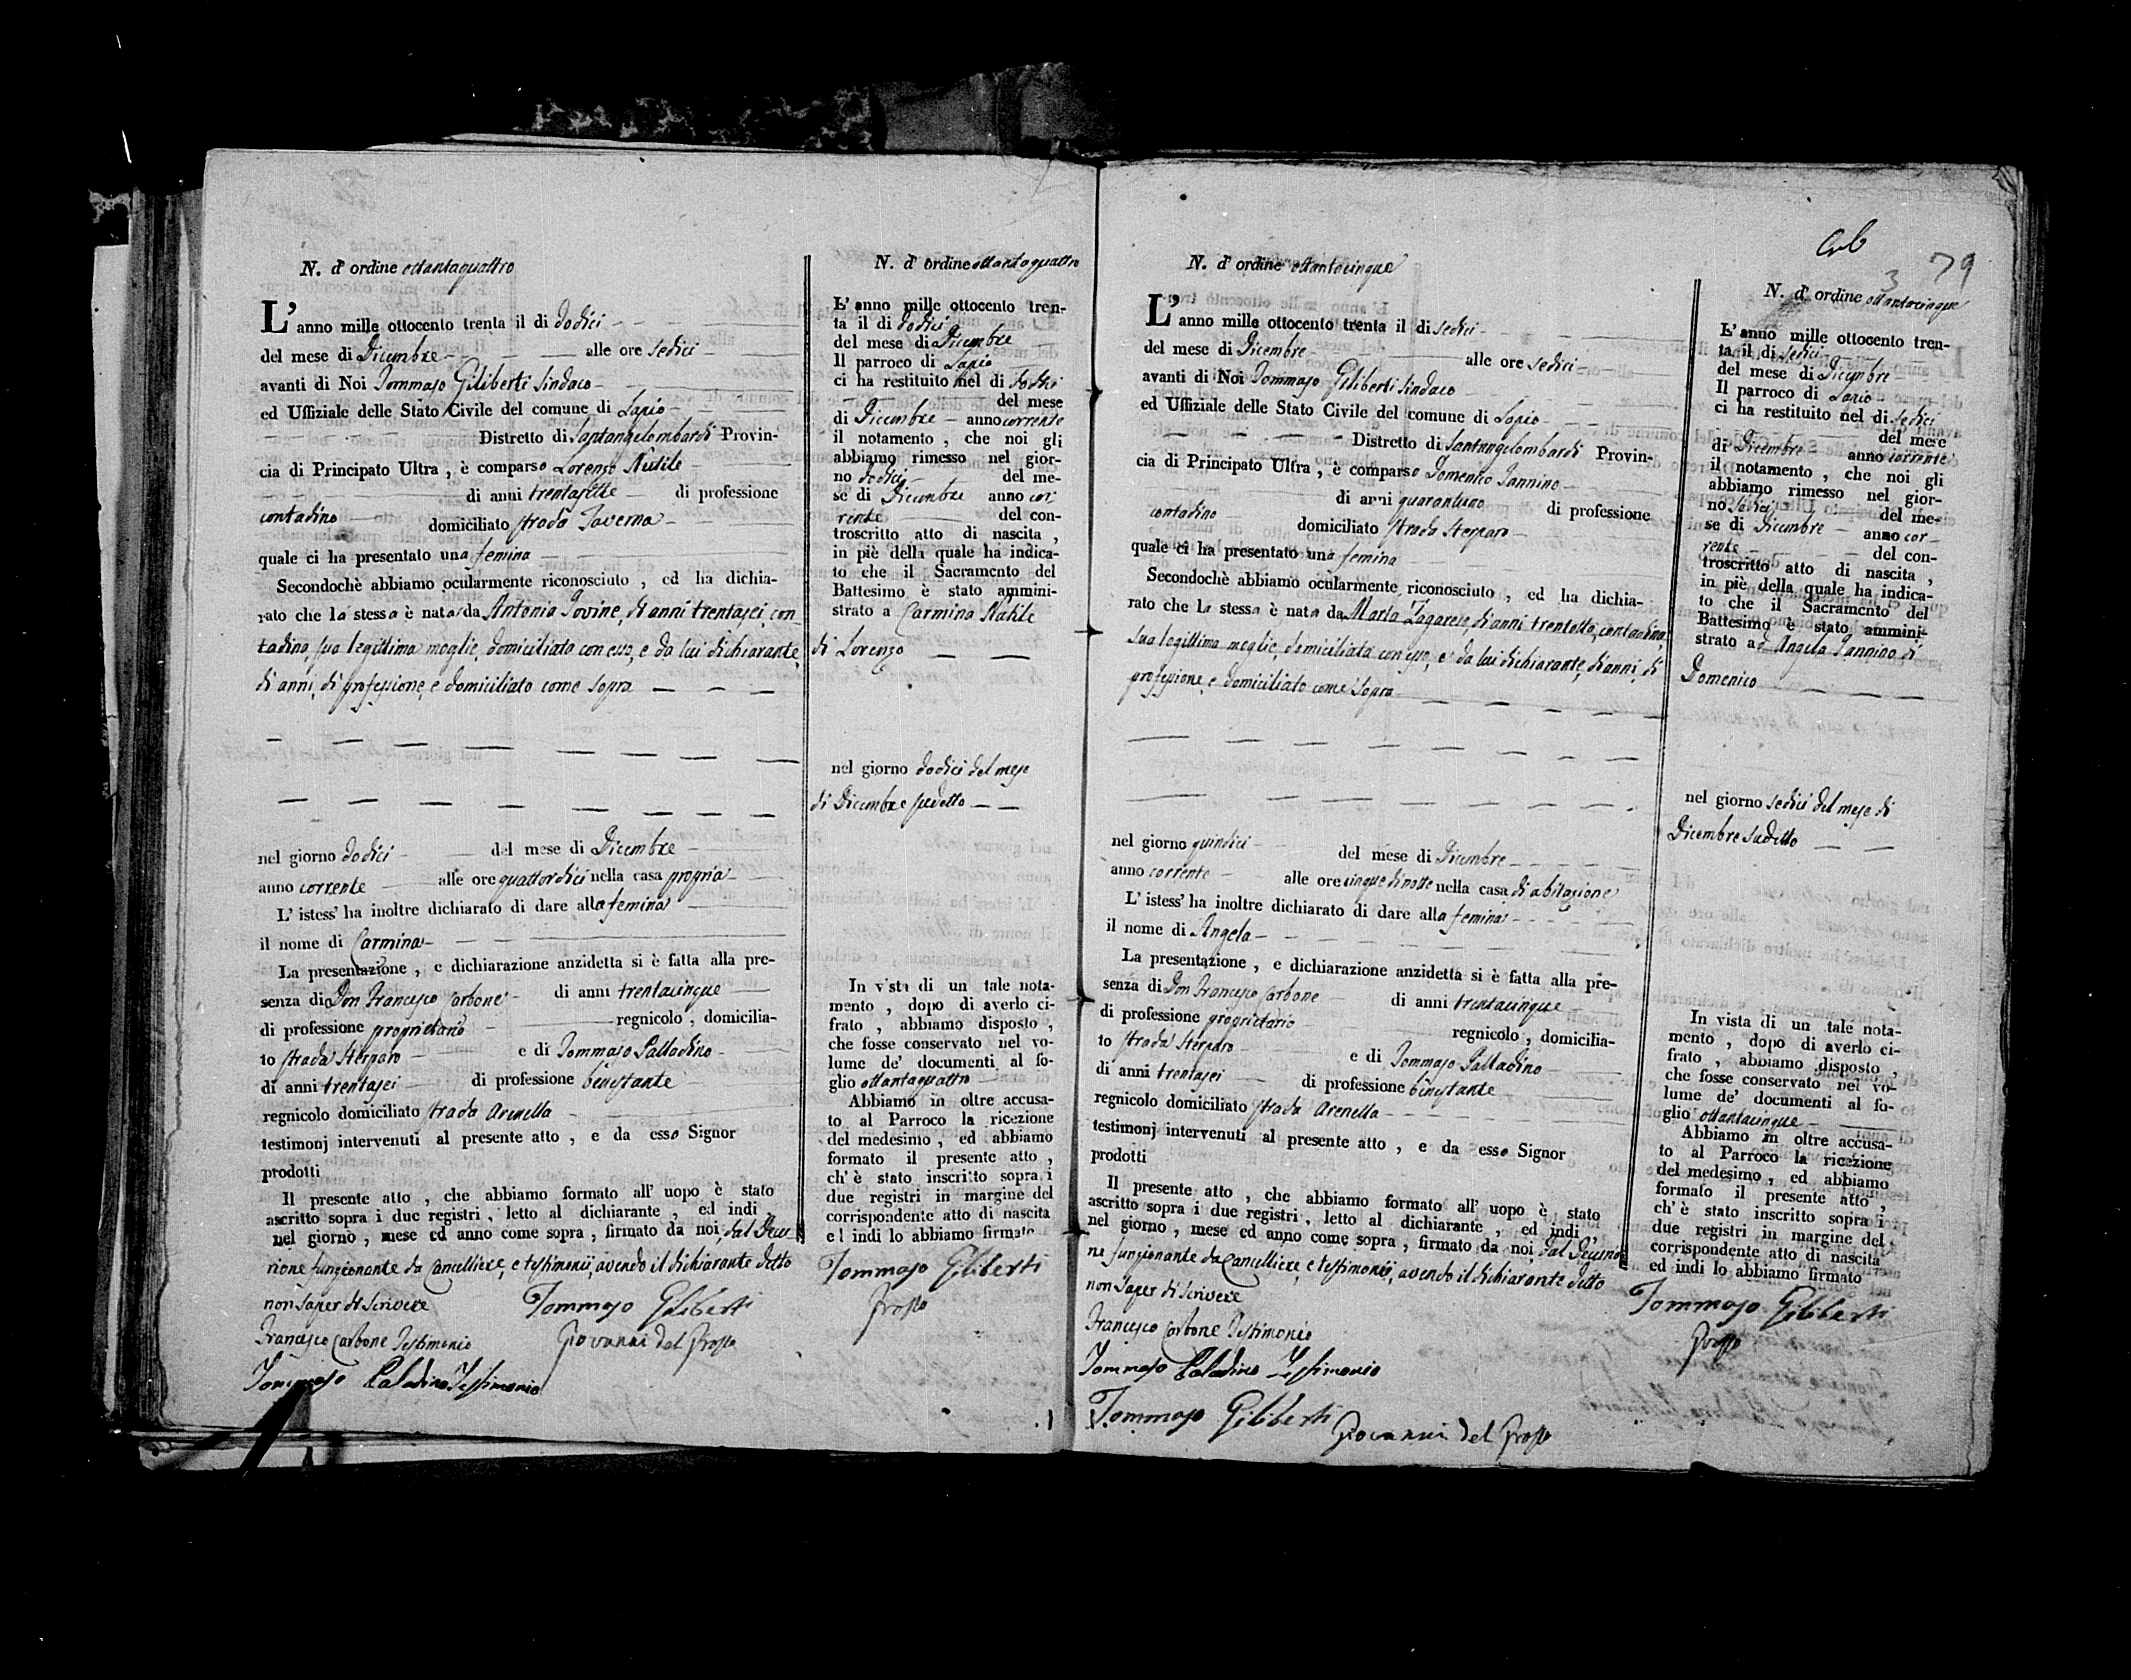 N. d' ordine ottantaquattro
L' anno mille ottocento trenta il di dodici
del mese di Dicembre alle ore sedici
avanti di Noi Tommaso Giliberti Sindaco
ed Uffiziale delle Stato Civile del comune di Lapio
Distretto di Santangelombardi Provin-
cia di Principato Ultra , è comparso Lorenzo Nutile
di anni trentasette di professione
contadino domiciliato strada Taverna
quale ci ha presentato una femina
Secondochè abbiamo ocularmente riconosciuto , ed ha dichia-
rato che la stessa è nata da Antonia Iovine, di anni trentasei, con-
tadina, sua legittima moglie, domiciliata con esso, e da lui dichiarante,
di anni, di professione, e domiciliato come sopra
nel giorno dodici del mese di Dicembre
anno corrente alle ore quattordici nella casa propria
L' istess' ha inoltre dichiarato di dare alla femina
il nome di Carmina
La presentazione , e dichiarazione anzidetta si è fatta alla pre-
senza di Don Francesco Carbone di anni trentacinque
di professione proprietario regnicolo , domicilia-
to strada Sterparo e di Tommaso Palladino
di anni trentasei di professione benestante
regnicolo domiciliato strada Arenella
testimonj intervenuti al presente atto , e da esso Signor
prodotti
Il presente atto , che abbiamo formato all' uopo è stato
ascritto sopra i due registri , letto al dichiarante , ed indi ,
nel giorno , mese ed anno come sopra , firmato da noi, dal Decu-
rione funzionante da Cancelliere, e testimonii, avendo il dichiarante detto
non saper di scrivere
Tommaso Giliberti
Francesco Carbone Testimonio
Giovanni del Grosso
Tommaso Paladino Testimonio
N. d' ordine ottantaquattro
L' anno mille ottocento tren-
ta il di dodici
del mese di Dicembre
Il parroco di Lapio
ci ha restituito nel di dodici
del mese
di Dicembre anno corrente
il notamento , che noi gli
abbiamo rimesso nel gior-
no dodici del me-
se di Dicembre anno cor-
rente del con-
troscritto atto di nascita ,
in piè della quale ha indica-
to che il Sacramento del
Battesimo è stato ammini-
strato a Carmina Nutile
di Lorenzo
nel giorno dodici del mese
di Dicembre sudetto
In vista di un tale nota-
mento , dopo di averlo ci-
frato , abbiamo disposto ,
che fosse conservato nel vo-
lume de' documenti al fo-
glio ottantaquattro
Abbiamo in oltre accusa-
to al Parroco la ricezione
del medesimo , ed abbiamo
formato il presente atto ,
ch' è stato inscritto sopra i
due registri in margine del
corrispondente atto di nascita
ed indi lo abbiamo firmato
Tommaso Giliberti
Grosso
79
3
N. d' ordine ottantacinque
L' anno mille ottocento trenta il di sedici
del mese di Dicembre alle ore sedici
avanti di Noi Tommaso Giliberti Sindaco
ed Uffiziale delle Stato Civile del comune di Lapio
Distretto di Santangelombardi Provin-
cia di Principato Ultra , è comparso Domenico Iannino
di anni quarantuno di professione
contadino domiciliato strada Sterparo
quale ci ha presentato una femina
Secondochè abbiamo ocularmente riconosciuto , ed ha dichia-
rato che la stessa è nata da Marta Zagarese, di anni trentotto, contadina,
sua legittima moglie, domiciliata con esso, e da lui dichiarante, di anni, di
professione, e domiciliato come sopra
nel giorno quindici del mese di Dicembre
anno corrente alle ore cinque di notte nella casa di abitazione
L' istess' ha inoltre dichiarato di dare alla femina
il nome di Angela
La presentazione , e dichiarazione anzidetta si è fatta alla pre-
senza di Don Francesco Carbone di anni trentacinque
di professione proprietario regnicolo , domicilia-
to strada Sterparo e di Tommaso Palladino
di anni trentasei di professione benestante
regnicolo domiciliato strada Arenella
testimonj intervenuti al presente atto , e da esso Signor
prodotti
Il presente atto , che abbiamo formato all' uopo è stato
ascritto sopra i due registri , letto al dichiarante , ed indi ,
nel giorno , mese ed anno come sopra , firmato da noi, dal Decurio-
ne funzionante da Cancelliere, e testimonii, avendo il dichiarante detto
non saper di scrivere
Francesco Carbone Testimonio
Tommaso Paladino Testimonio
Tommaso Giliberti
Giovanni del Grosso
N. d' ordine ottantacinque
L' anno mille ottocento tren-
ta il di sedici
del mese di Dicembre
Il parroco di Lapio
ci ha restituito nel di sedici
del mese
di Dicembre anno corrente
il notamento , che noi gli
abbiamo rimesso nel gior-
no sedici del me-
se di Dicembre anno cor-
rente del con-
troscritto atto di nascita ,
in piè della quale ha indica-
to che il Sacramento del
Battesimo è stato ammini-
strato ad Angela Iannino di
Domenico
nel giorno sedici del mese di
Dicembre sudetto
In vista di un tale nota-
mento , dopo di averlo ci-
frato , abbiamo disposto ,
che fosse conservato nel vo-
lume de' documenti al fo-
glio ottantacinque
Abbiamo in oltre accusa-
to al Parroco la ricezione
del medesimo , ed abbiamo
formato il presente atto ,
ch' è stato inscritto sopra i
due registri in margine del
corrispondente atto di nascita
ed indi lo abbiamo firmato
Tommaso Giliberti
Grosso